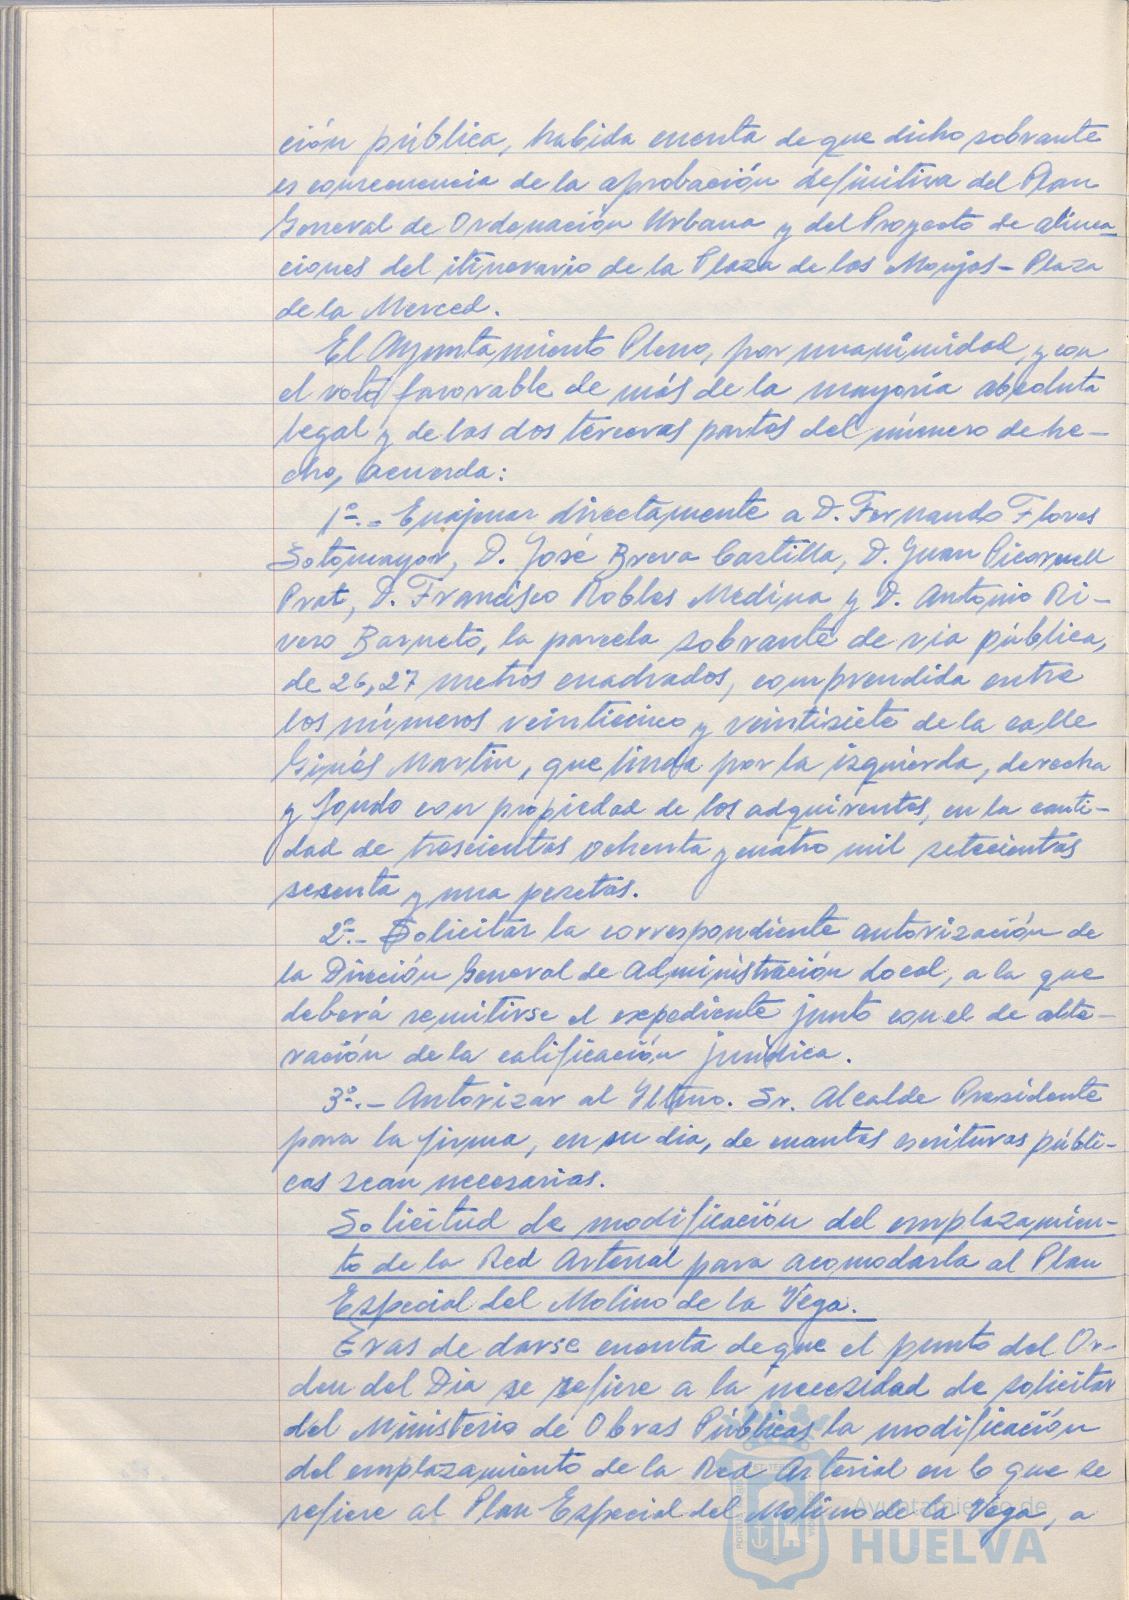 ción pública, habida cuenta de que dicho sobrante
es consecuencia de la aprobación definitiva del Plan
General de Ordenación Urbana y del Proyecto de alinea-
ciones del itinerario de la Plaza de las Monjas - Plaza
de la Merced.
El Ayuntamiento Pleno, por unanimidad, y con
el voto favorable de más de la mayoría absoluta
legal y de las dos terceras partes del número de he-
cho, acuerda:
1º.- Enajenar directamente a D. Fernando Flores
Sotomayor, D. José Breva Castilla, D. Juan Picornell
Prat, D. Francisco Robles Medina y D. Antonio Ri-
vero Barneto, la parcela sobrante de vía pública,
de 26,27 metros cuadrados, comprendida entre
los números veinticinco y veintisiete de la calle
Ginés Martín, que linda por la izquierda, derecha
y fondo con propiedad de los adquirentes, en la canti-
dad de trescientas ochenta y cuatro mil setecientas
sesenta y una pesetas.
2º.- Solicitar la correspondiente autorización de
la Dirección General de Administración Local, a la que
deberá remitirse el expediente junto con el de alte-
ración de la calificación jurídica.
3º.- Autorizar al Iltmo. Sr. Alcalde Presidente
para la firma, en su día, de cuantas escrituras públi-
cas sean necesarias.
Solicitud de modificación del emplazamien-
to de la Red Arterial para acomodarla al Plan
Especial del Molino de la Vega.
Tras de darse cuenta de que el punto del Or-
den del Día se refiere a la necesidad de solicitar
del Ministerio de Obras Públicas la modificación
del emplazamiento de la Red Arterial en lo que se
refiere al Plan Especial del Molino de la Vega, a
Ayuntamiento de
HUELVA